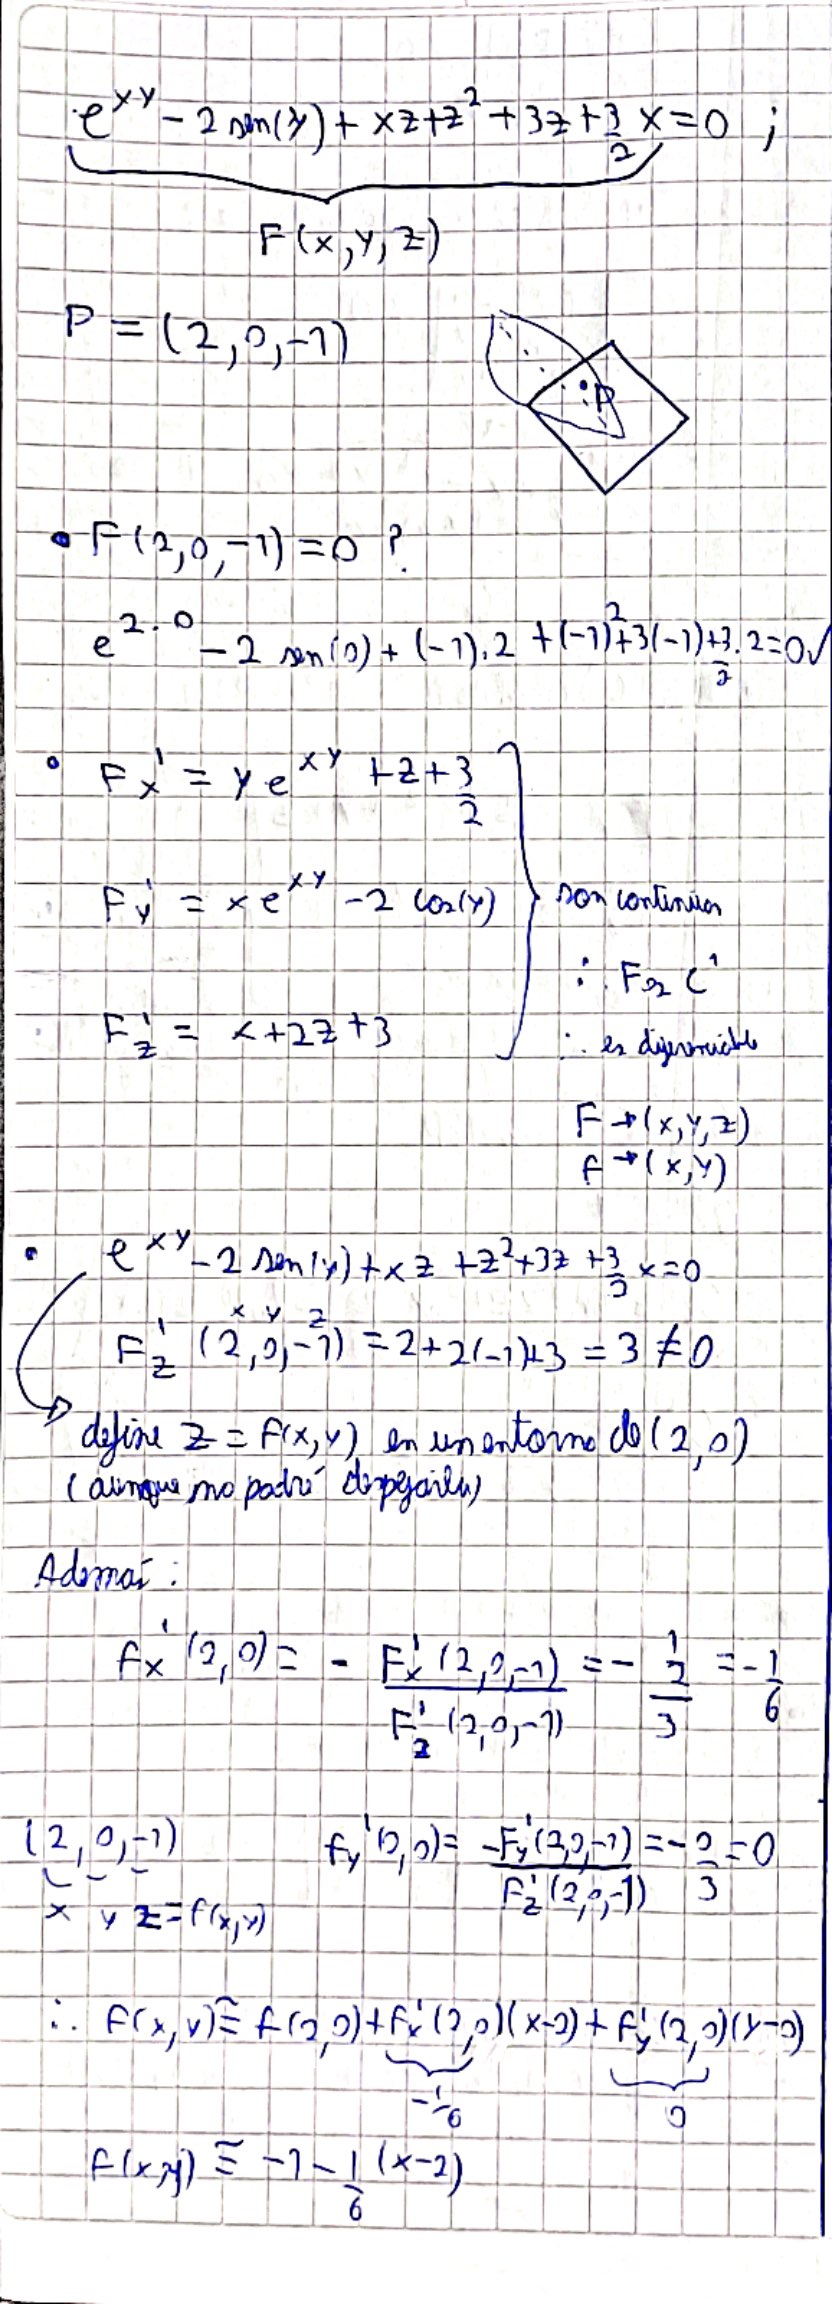 e^{xy} - 2 sen(y) + xz + z² + 3z + 3/2 x = 0 ;
F(x,y,z)
P = (2,0,-1)
P
• F(2,0,-1) = 0 ?
e^{2·0} - 2 sen(0) + (-1).2 + (-1)² + 3(-1) + 3/2 . 2 = 0 ✓
• Fx' = y e^{xy} + z + 3/2
Fy' = x e^{xy} - 2 cos(y)
son continuas
∴ F es C¹
Fz' = x + 2z + 3
∴ es diferenciable
F → (x,y,z)
f → (x,y)
• e^{xy} - 2 sen(y) + xz + z² + 3z + 3/2 x = 0
x y z
Fz' (2,0,-1) = 2 + 2(-1) + 3 = 3 ≠ 0
define z = f(x,y) en un entorno de (2,0)
(aunque no podré despejarla)
Además:
fx' (2,0) = - Fx' (2,0,-1) / Fz' (2,0,-1) = - 1/2 / 3 = - 1/6
(2,0,-1)
x y z = f(x,y)
fy' (2,0) = -Fy' (2,0,-1) / Fz' (2,0,-1) = - 0/3 = 0
∴ f(x,y) ≅ f(2,0) + fx' (2,0)(x-2) + fy' (2,0)(y-0)
-1/6
0
f(x,y) ≅ -1 - 1/6 (x-2)